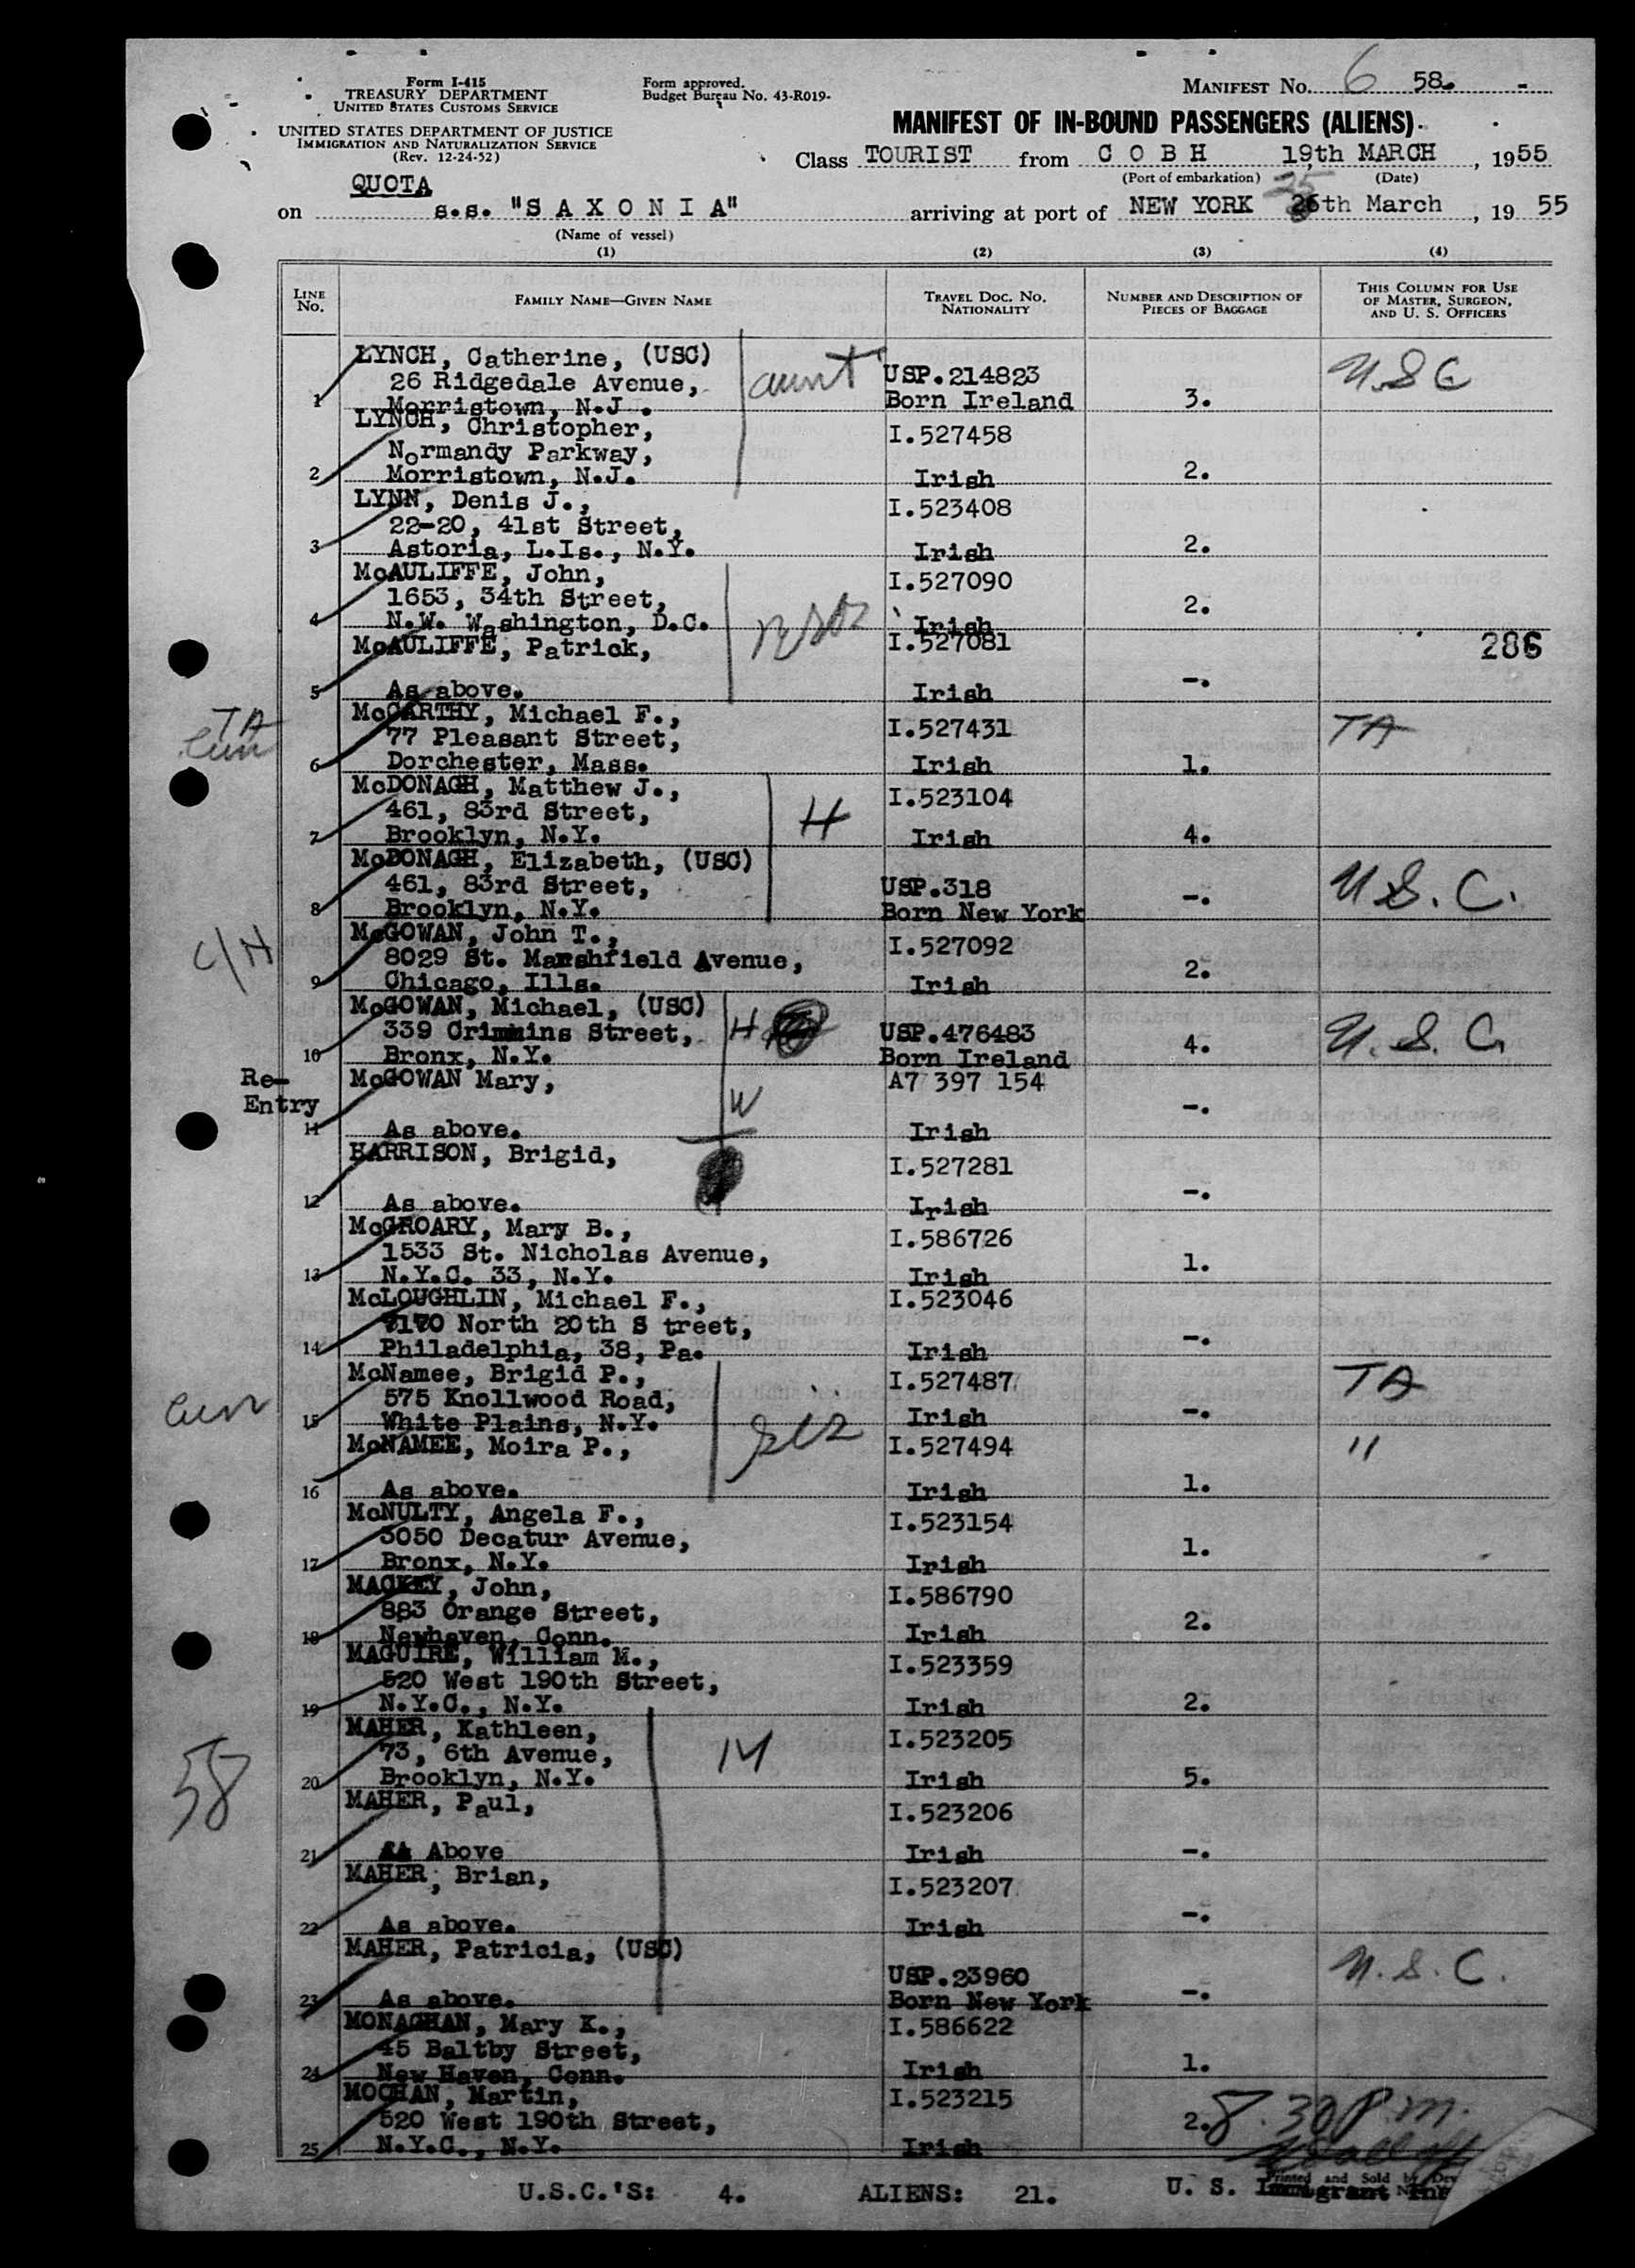 Form I-415
TREASURY DEPARTMENT
UNITED STATES CUSTOMS SERVICE
UNITED STATES DEPARTMENT OF JUSTICE
IMMIGRATION AND NATURALIZATION SERVICE
(Rev. 12-24-52)
Form approved.
Budget Bureau No. 43-R019-
MANIFEST NO. 6 58.
MANIFEST OF IN-BOUND PASSENGERS (ALIENS)
Class TOURIST from C O B H 19th MARCH, 1955
(Port of embarkation) (Date)
QUOTA
on s.s. "S A X O N I A" arriving at port of NEW YORK 25 26th March, 19 55
(Name of vessel)
(1) (2) (3) (4)
LINE NO. FAMILY NAME—GIVEN NAME TRAVEL DOC. NO. NATIONALITY NUMBER AND DESCRIPTION OF PIECES OF BAGGAGE THIS COLUMN FOR USE OF MASTER, SURGEON, AND U. S. OFFICERS
LYNCH, Catherine, (USC) aunt U.S.C
26 Ridgedale Avenue, USP.214823
1 Morristown, N.J. Born Ireland 3.
LYNCH, Christopher, I.527458
Normandy Parkway,
2 Morristown, N.J. Irish 2.
LYNN, Denis J., I.523408
22-20, 41st Street,
3 Astoria, L.Is., N.Y. Irish 2.
McAULIFFE, John, I.527090
1653, 34th Street, 2.
4 N.W. Washington, D.C. Irish
McAULIFFE, Patrick, I.527081 286
5 As above. Irish -.
TA
McCARTHY, Michael F., I.527431 TA
77 Pleasant Street,
6 Dorchester, Mass. Irish 1.
McDONAGH, Matthew J., I.523104
461, 83rd Street, H
7 Brooklyn, N.Y. Irish 4.
McDONAGH, Elizabeth, (USC)
461, 83rd Street, USP.318 U.S.C.
8 Brooklyn, N.Y. Born New York -.
C/H
McGOWAN, John T., I.527092
8029 St. Marshfield Avenue, 2.
9 Chicago, Ills. Irish
McGOWAN, Michael, (USC) H
339 Crimmins Street, USP.476483 U.S.C.
10 Bronx, N.Y. Born Ireland 4.
Re-Entry
McGOWAN Mary, A7 397 154
W -.
11 As above. Irish
HARRISON, Brigid, I.527281
12 As above. Irish -.
McGROARY, Mary B., I.586726
1533 St. Nicholas Avenue, 1.
13 N.Y.C. 33, N.Y. Irish
McLOUGHLIN, Michael F., I.523046
7170 North 20th S treet, -.
14 Philadelphia, 38, Pa. Irish
McNamee, Brigid P., I.527487 TA
575 Knollwood Road, -.
15 White Plains, N.Y. Irish
McNAMEE, Moira P., I.527494 "
16 As above. Irish 1.
McNULTY, Angela F., I.523154
3050 Decatur Avenue, 1.
17 Bronx, N.Y. Irish
MACKEY, John, I.586790
883 Orange Street, 2.
18 Newhaven, Conn. Irish
MAGUIRE, William M., I.523359
520 West 190th Street,
19 N.Y.C., N.Y. Irish 2.
MAHER, Kathleen, I.523205
73, 6th Avenue, M
20 Brooklyn, N.Y. Irish 5.
58
MAHER, Paul, I.523206
21 Above Irish -.
MAHER, Brian, I.523207
22 As above. Irish -.
MAHER, Patricia, (USC) U.S.C.
USP.23960
23 As above. Born New York -.
MONAGHAN, Mary K., I.586622
45 Baltby Street,
24 New Haven, Conn. Irish 1.
MOOHAN, Martin, I.523215
520 West 190th Street, 2. 8.30 P.M.
25 N.Y.C., N.Y. Irish
U.S.C.'S: 4. ALIENS: 21. U. S. Immigrant
Printed and Sold by